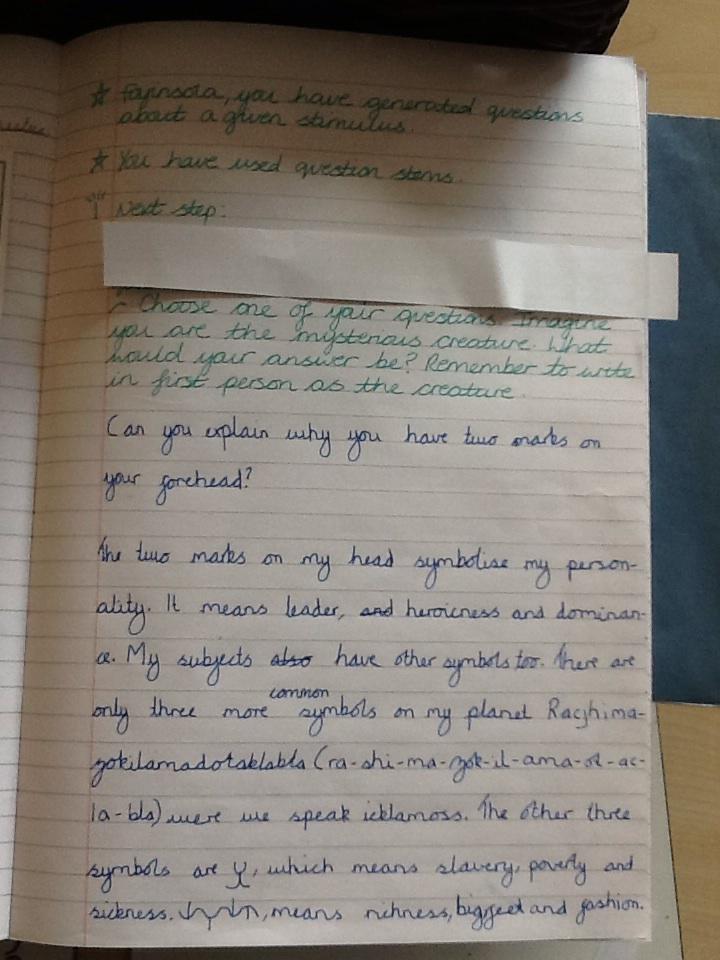 ☆ Fajinsola, you have generated questions
about a given stimulus.
☆ You have used question stems.
Next step:
~ Choose one of your questions. Imagine
you are the mysterious creature. What
would your answer be? Remember to write
in first person as the creature.
Can you explain why you have two marks on
your forehead?
The two marks on my head symbolise my person-
ality. It means leader, and heroicness and dominan-
ce. My subjects also have other symbols too. There are
only three more common symbols on my planet Racshima-
zokilamadotaklabla (ra-shi-ma-zok-il-ama-ot-ac-
la-bla) were we speak icklamoss. The other three
symbols are , which means slavery, poverty and
sickness. , means richness, biggeet and fashion.